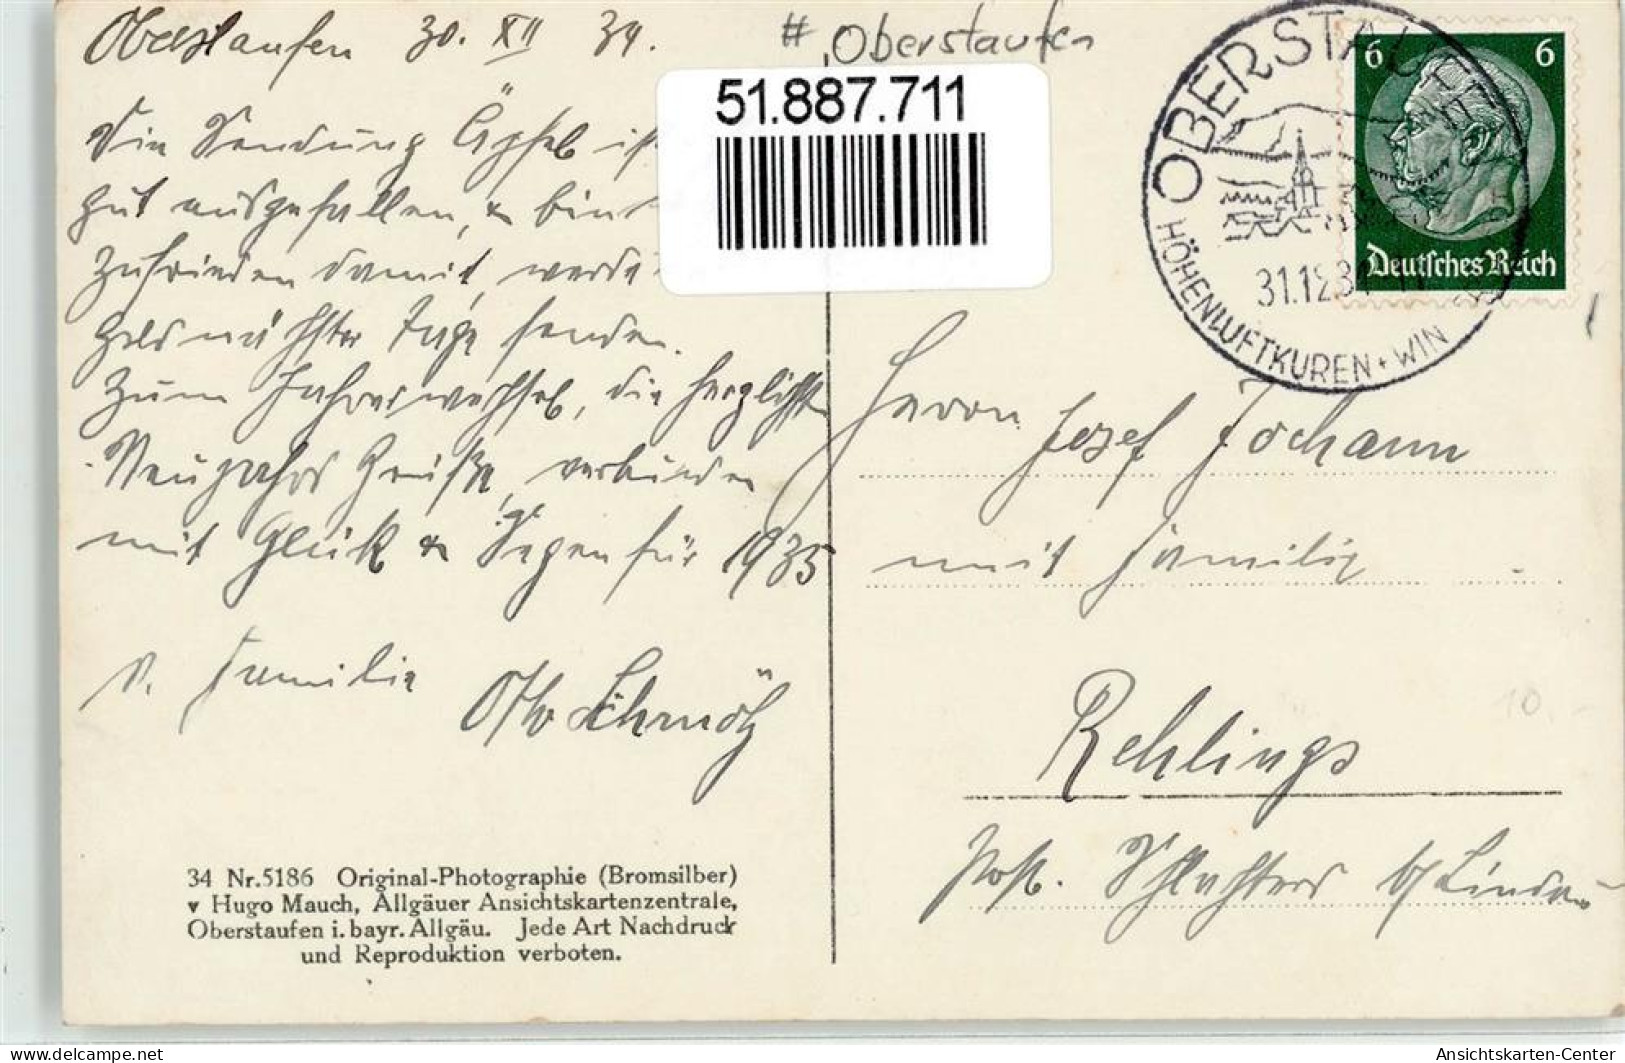 Oberstaufen 30. XII 34.
# Oberstaufen
51.887.711
Die Sendung Äpfel ist
gut ausgefallen, & bin
zufrieden damit, werde
Geld nächster Tage senden.
Zum Jahreswechsel, die herzlichsten
Neujahrs Grüße, verbunden
mit Glück & Segen für 1935
v. Familie
Otto Schmölz
OBERSTAUFEN
31.12.34
HÖHENLUFTKUREN + WIN
6 6
Deutsches Reich
Herrn Josef Johann
mit Familie
Rehlings
Post. Schlachters b/ Lindau
10.-
34 Nr.5186 Original-Photographie (Bromsilber)
v Hugo Mauch, Allgäuer Ansichtskartenzentrale,
Oberstaufen i. bayr. Allgäu. Jede Art Nachdruck
und Reproduktion verboten.
Ansichtskarten-Center
delcampe.net